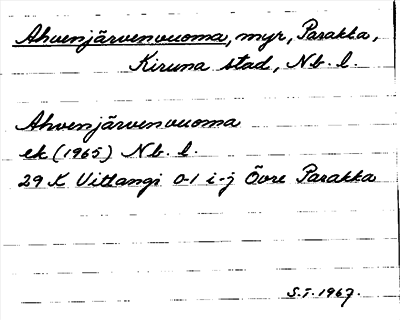 Ahvenjärvenvuoma, myr, Parakka,
Kiruna stad, Nb. l.
Ahvenjärvenvuoma
ek (1965) Nb. l.
29 K Vittangi 0-1 i-j Övre Parakka
S.T. 1967.